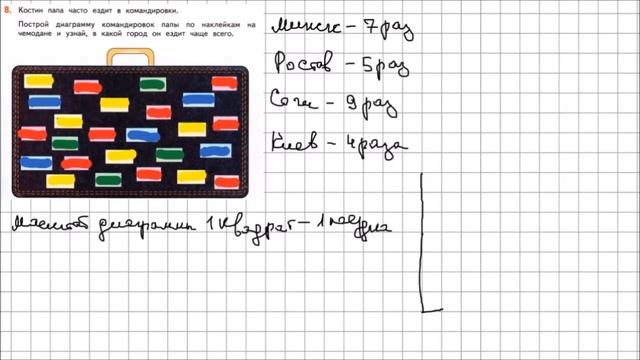 8. Костин папа часто ездит в командировки.
Построй диаграмму командировок папы по наклейкам на
чемодане и узнай, в какой город он ездит чаще всего.
Минск - 7 раз
Ростов - 5 раз
Сочи - 9 раз
Киев - 4 раза
Масштаб диаграммы 1 квадрат - 1 поездка